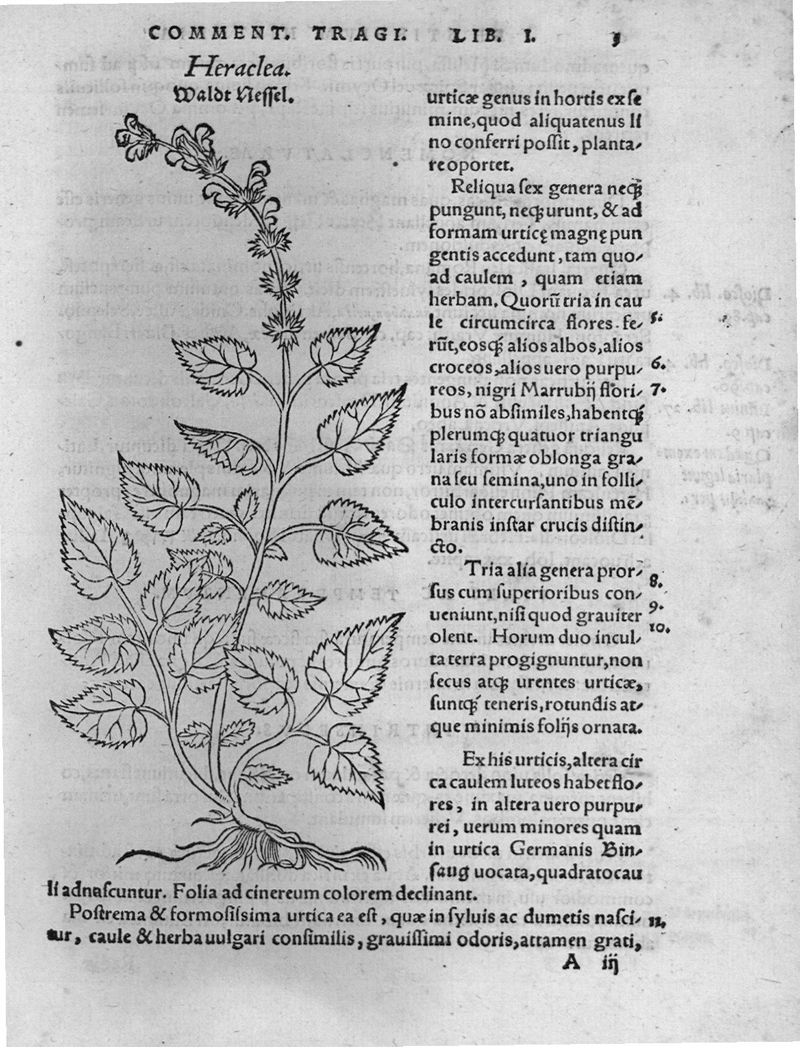 COMMENT. TRAGI. LIB. I. 3
Heraclea.
Waldt Nessel.
urticæ genus in hortis ex se
mine, quod aliquatenus li
no conferri possit, planta-
re oportet.
Reliqua sex genera neqꝫ
pungunt, neqꝫ urunt, & ad
formam urticę magnę pun
gentis accedunt, tam quo-
ad caulem, quam etiam
herbam. Quorũ tria in cau
le circumcirca flores fe-
rũt, eosqꝫ alios albos, alios
croceos, alios uero purpu-
reos, nigri Marrubij flori-
bus nõ absimiles, habentqꝫ
plerumqꝫ quatuor triangu
laris formæ oblonga gra-
na seu semina, uno in folli-
culo intercursantibus mẽ-
branis instar crucis distin-
cto.
5.
6.
7.
Tria alia genera pror-
sus cum superioribus con-
ueniunt, nisi quod grauiter
olent. Horum duo incul-
ta terra progignuntur, non
secus atqꝫ urentes urticæ,
suntqꝫ teneris, rotundis at-
que minimis folijs ornata.
8.
9.
10.
Ex his urticis, altera cir
ca caulem luteos habet flo-
res, in altera uero purpu-
rei, uerum minores quam
in urtica Germanis Bin-
saug uocata, quadrato cau
li adnascuntur. Folia ad cinereum colorem declinant.
Postrema & formosissima urtica ea est, quæ in syluis ac dumetis nasci- 11.
tur, caule & herba uulgari consimilis, grauissimi odoris, attamen grati,
A iij